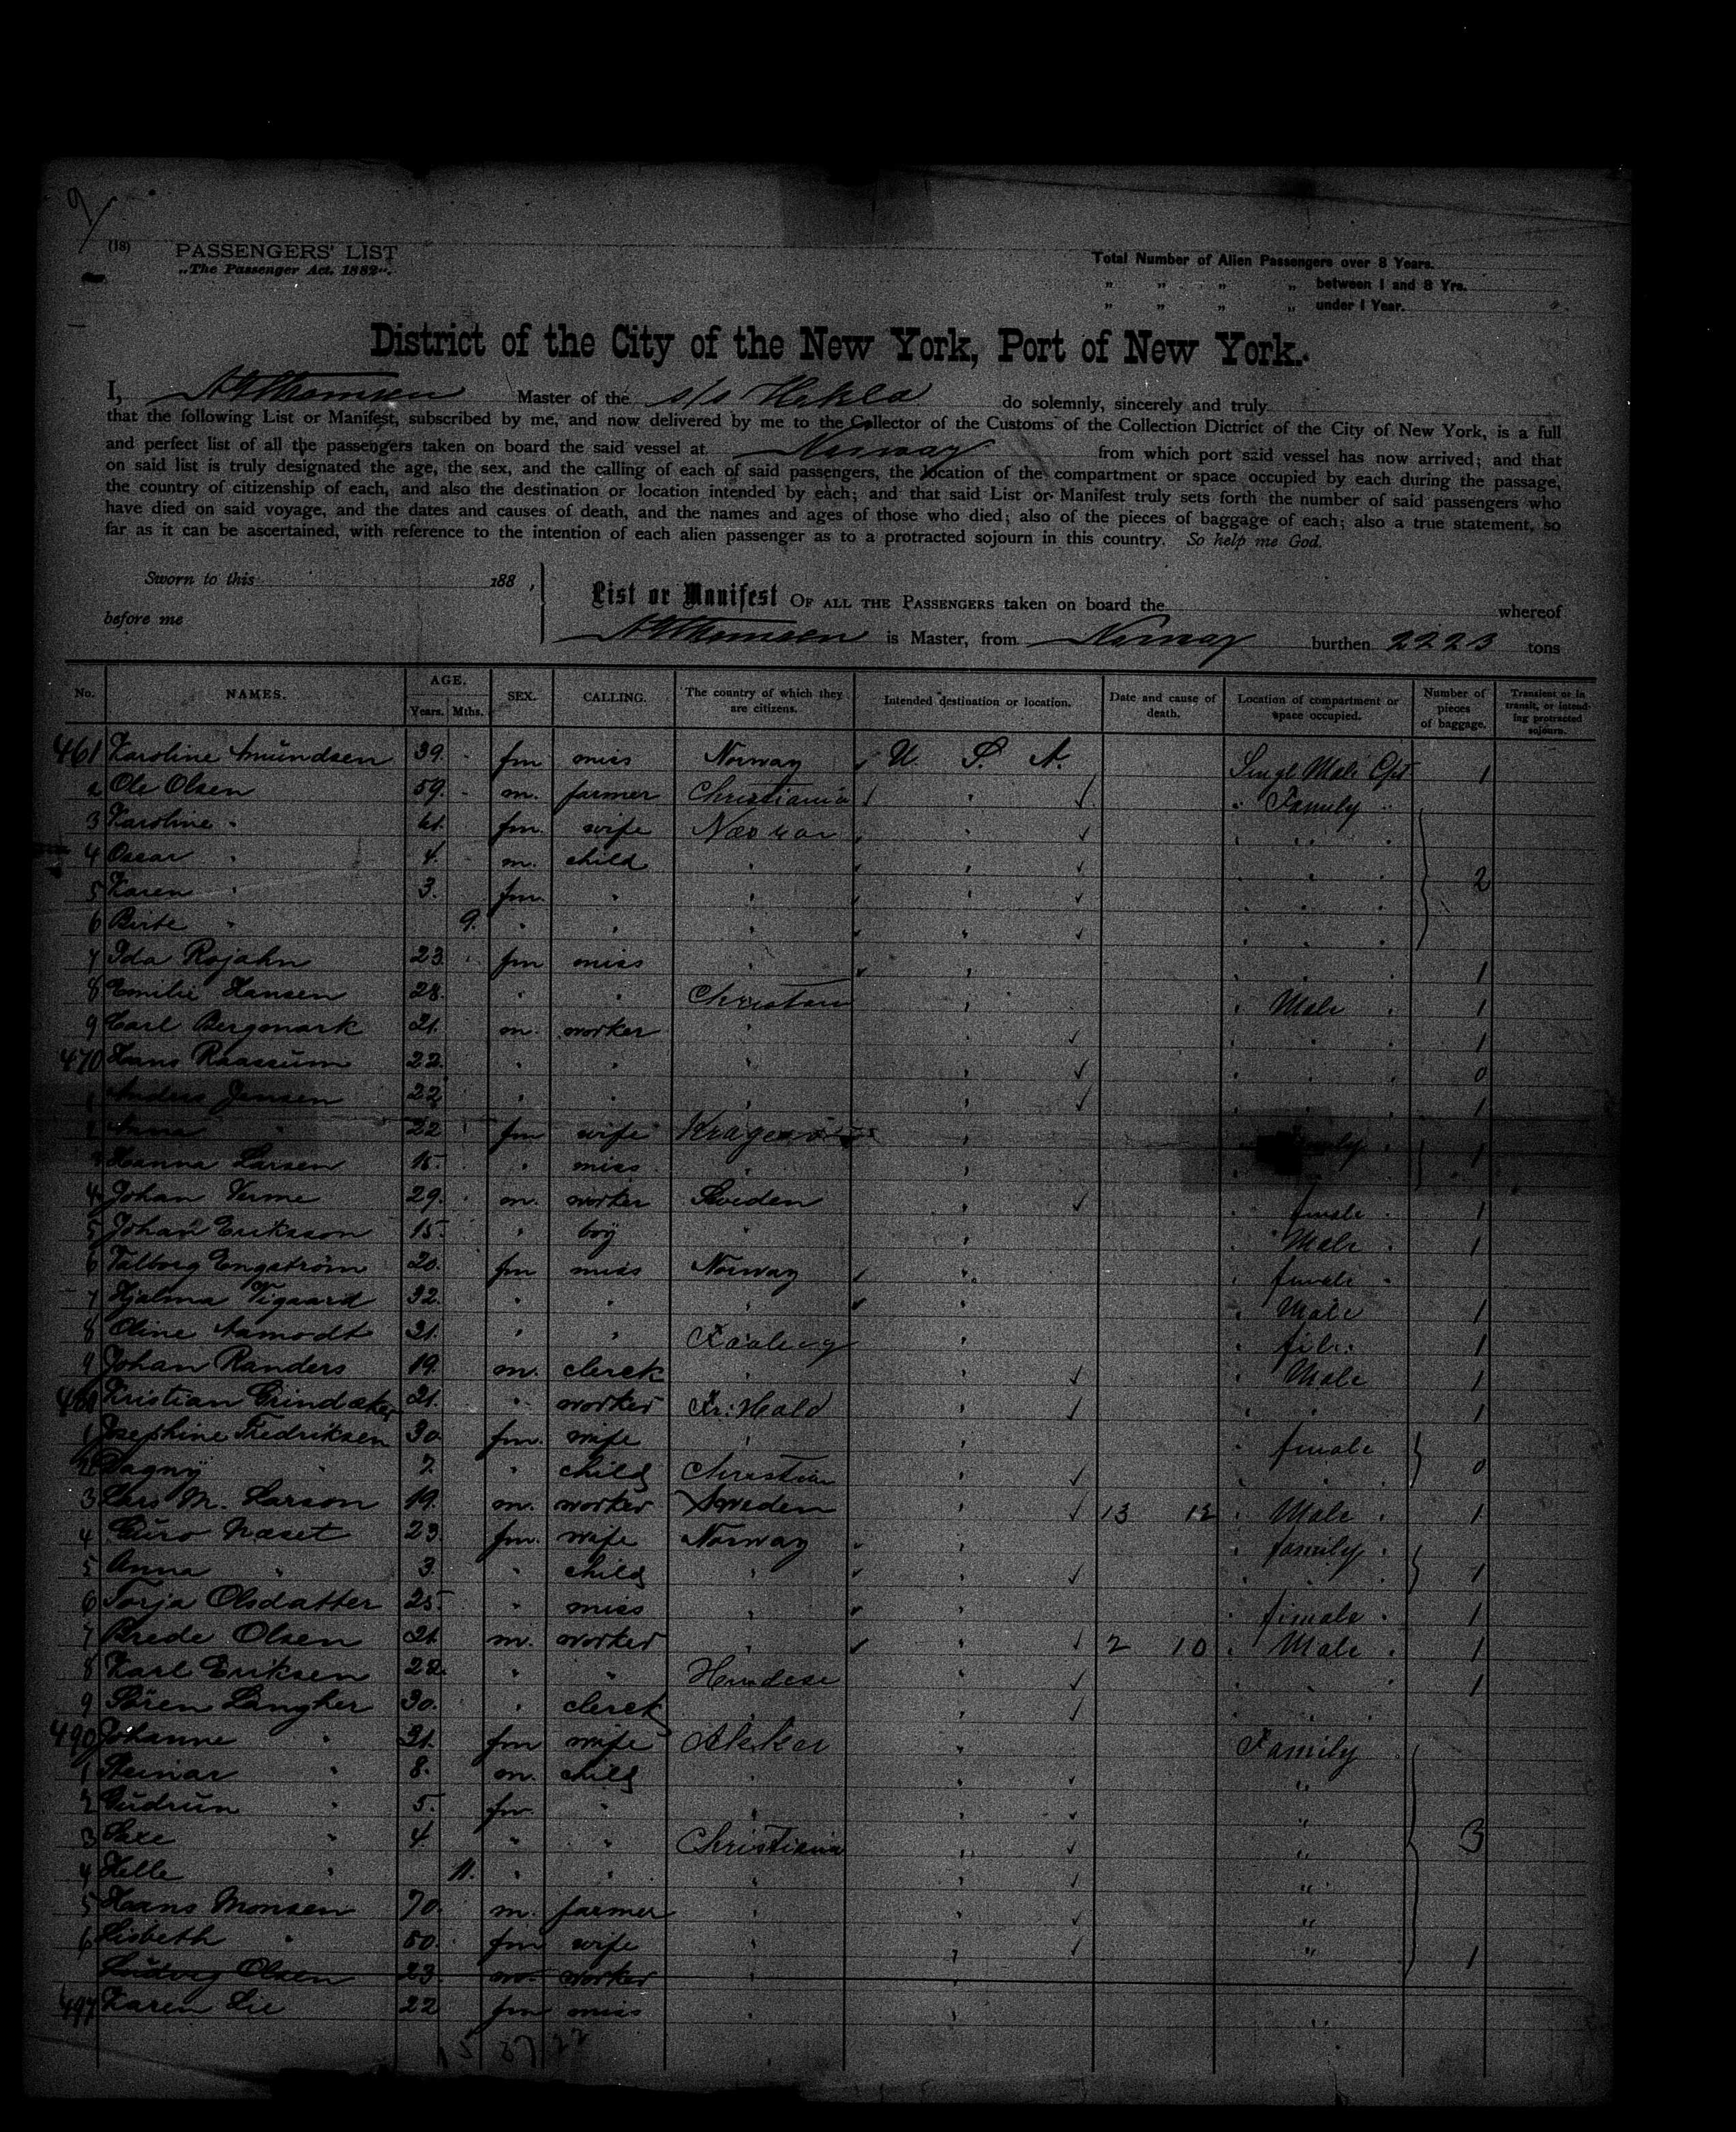 9/
(18) PASSENGERS' LIST
„The Passenger Act. 1882".
Total Number of Alien Passengers over 8 Years.
„ „ „ „ between 1 and 8 Yrs.
„ „ „ „ under 1 Year.
District of the City of the New York, Port of New York.
I, Thomsen Master of the s/s Hekla do solemnly, sincerely and truly
that the following List or Manifest, subscribed by me, and now delivered by me to the Collector of the Customs of the Collection District of the City of New York, is a full
and perfect list of all the passengers taken on board the said vessel at Norway from which port said vessel has now arrived; and that
on said list is truly designated the age, the sex, and the calling of each of said passengers, the location of the compartment or space occupied by each during the passage,
the country of citizenship of each, and also the destination or location intended by each; and that said List or Manifest truly sets forth the number of said passengers who
have died on said voyage, and the dates and causes of death, and the names and ages of those who died; also of the pieces of baggage of each; also a true statement, so
far as it can be ascertained, with reference to the intention of each alien passenger as to a protracted sojourn in this country. So help me God.
Sworn to this 188 ,
before me
List or Manifest OF ALL THE PASSENGERS taken on board the whereof
Thomsen is Master, from Norway burthen 2223 tons
No. NAMES. AGE. Years. Mths. SEX. CALLING. The country of which they are citizens. Intended destination or location. Date and cause of death. Location of compartment or space occupied. Number of pieces of baggage. Transient or in transit, or intending protracted sojourn.
461 Karoline Amundsen 39. fm miss Norway U. S. A. Singl Male Cpt 1
2 Ole Olsen 59. m. farmer Christiania " Family "
3 Karoline " 61. fm. wife " " "
4 Oscar " 4. m. child " " " " 2
5 Karen " 3. fm. " " " " "
6 Birte " 9. " " " " " "
7 Ida Rojahn 23. fm miss " " " " 1
8 Emilie Hansen 28. " " Christian " " Male " 1
9 Carl Bergmark 21. m. worker " " " " 1
470 Hans Raassum 22. " " " " " 0
1 Anders Jensen 22 " " " " " " 1
2 Anna " 22 fm wife Kragerö " 1
3 Hanna Larsen 15. " miss " "
4 Johan Verme 29. m. worker Sweden " female " 1
5 Johan Eriksson 15 " boy " " " Male " 1
6 Valborg Engström 20. fm miss Norway " " female "
7 Hjalma Vigaard 32. " " " " " Male 1
8 Oline Aamodt 21. " " " " 1
9 Johan Randers 19. m. clerck " " " Male 1
480 Kristian Grindaker 21. " worker Fr: Hald " " 1
1 Josephine Fredriksen 30 fm. wife " " " female
2 Dagny " 7. " child Christian " " 0
3 Lars M. Larson 19. m. worker Sweden " 13 12 " Male " 1
4 Guro Næset 23 fm. wife Norway " family "
5 Anna " 3. " child " " " 1
6 Torja Olsdatter 25. " miss " " " female " 1
7 Brede Olsen 21 m. worker " " 2 10 " Male " 1
8 Karl Eriksen 22. " " " " " " 1
9 Sören Langher 30. " clerck " " " "
490 Johanne " 31. fm wife " Family
1 Steinar " 8. m. child " " "
2 Gudrun " 5. fm " " " "
3 " 4 " " Christiania " " 3
4 Helle " 11. " " " " "
5 Hans Monsen 70. m. farmer " " "
6 Lisbeth " 50. fm wife " " " 1
Ludvig Olsen 23. m. worker " "
497 Karen Lie 22 fm miss " " "